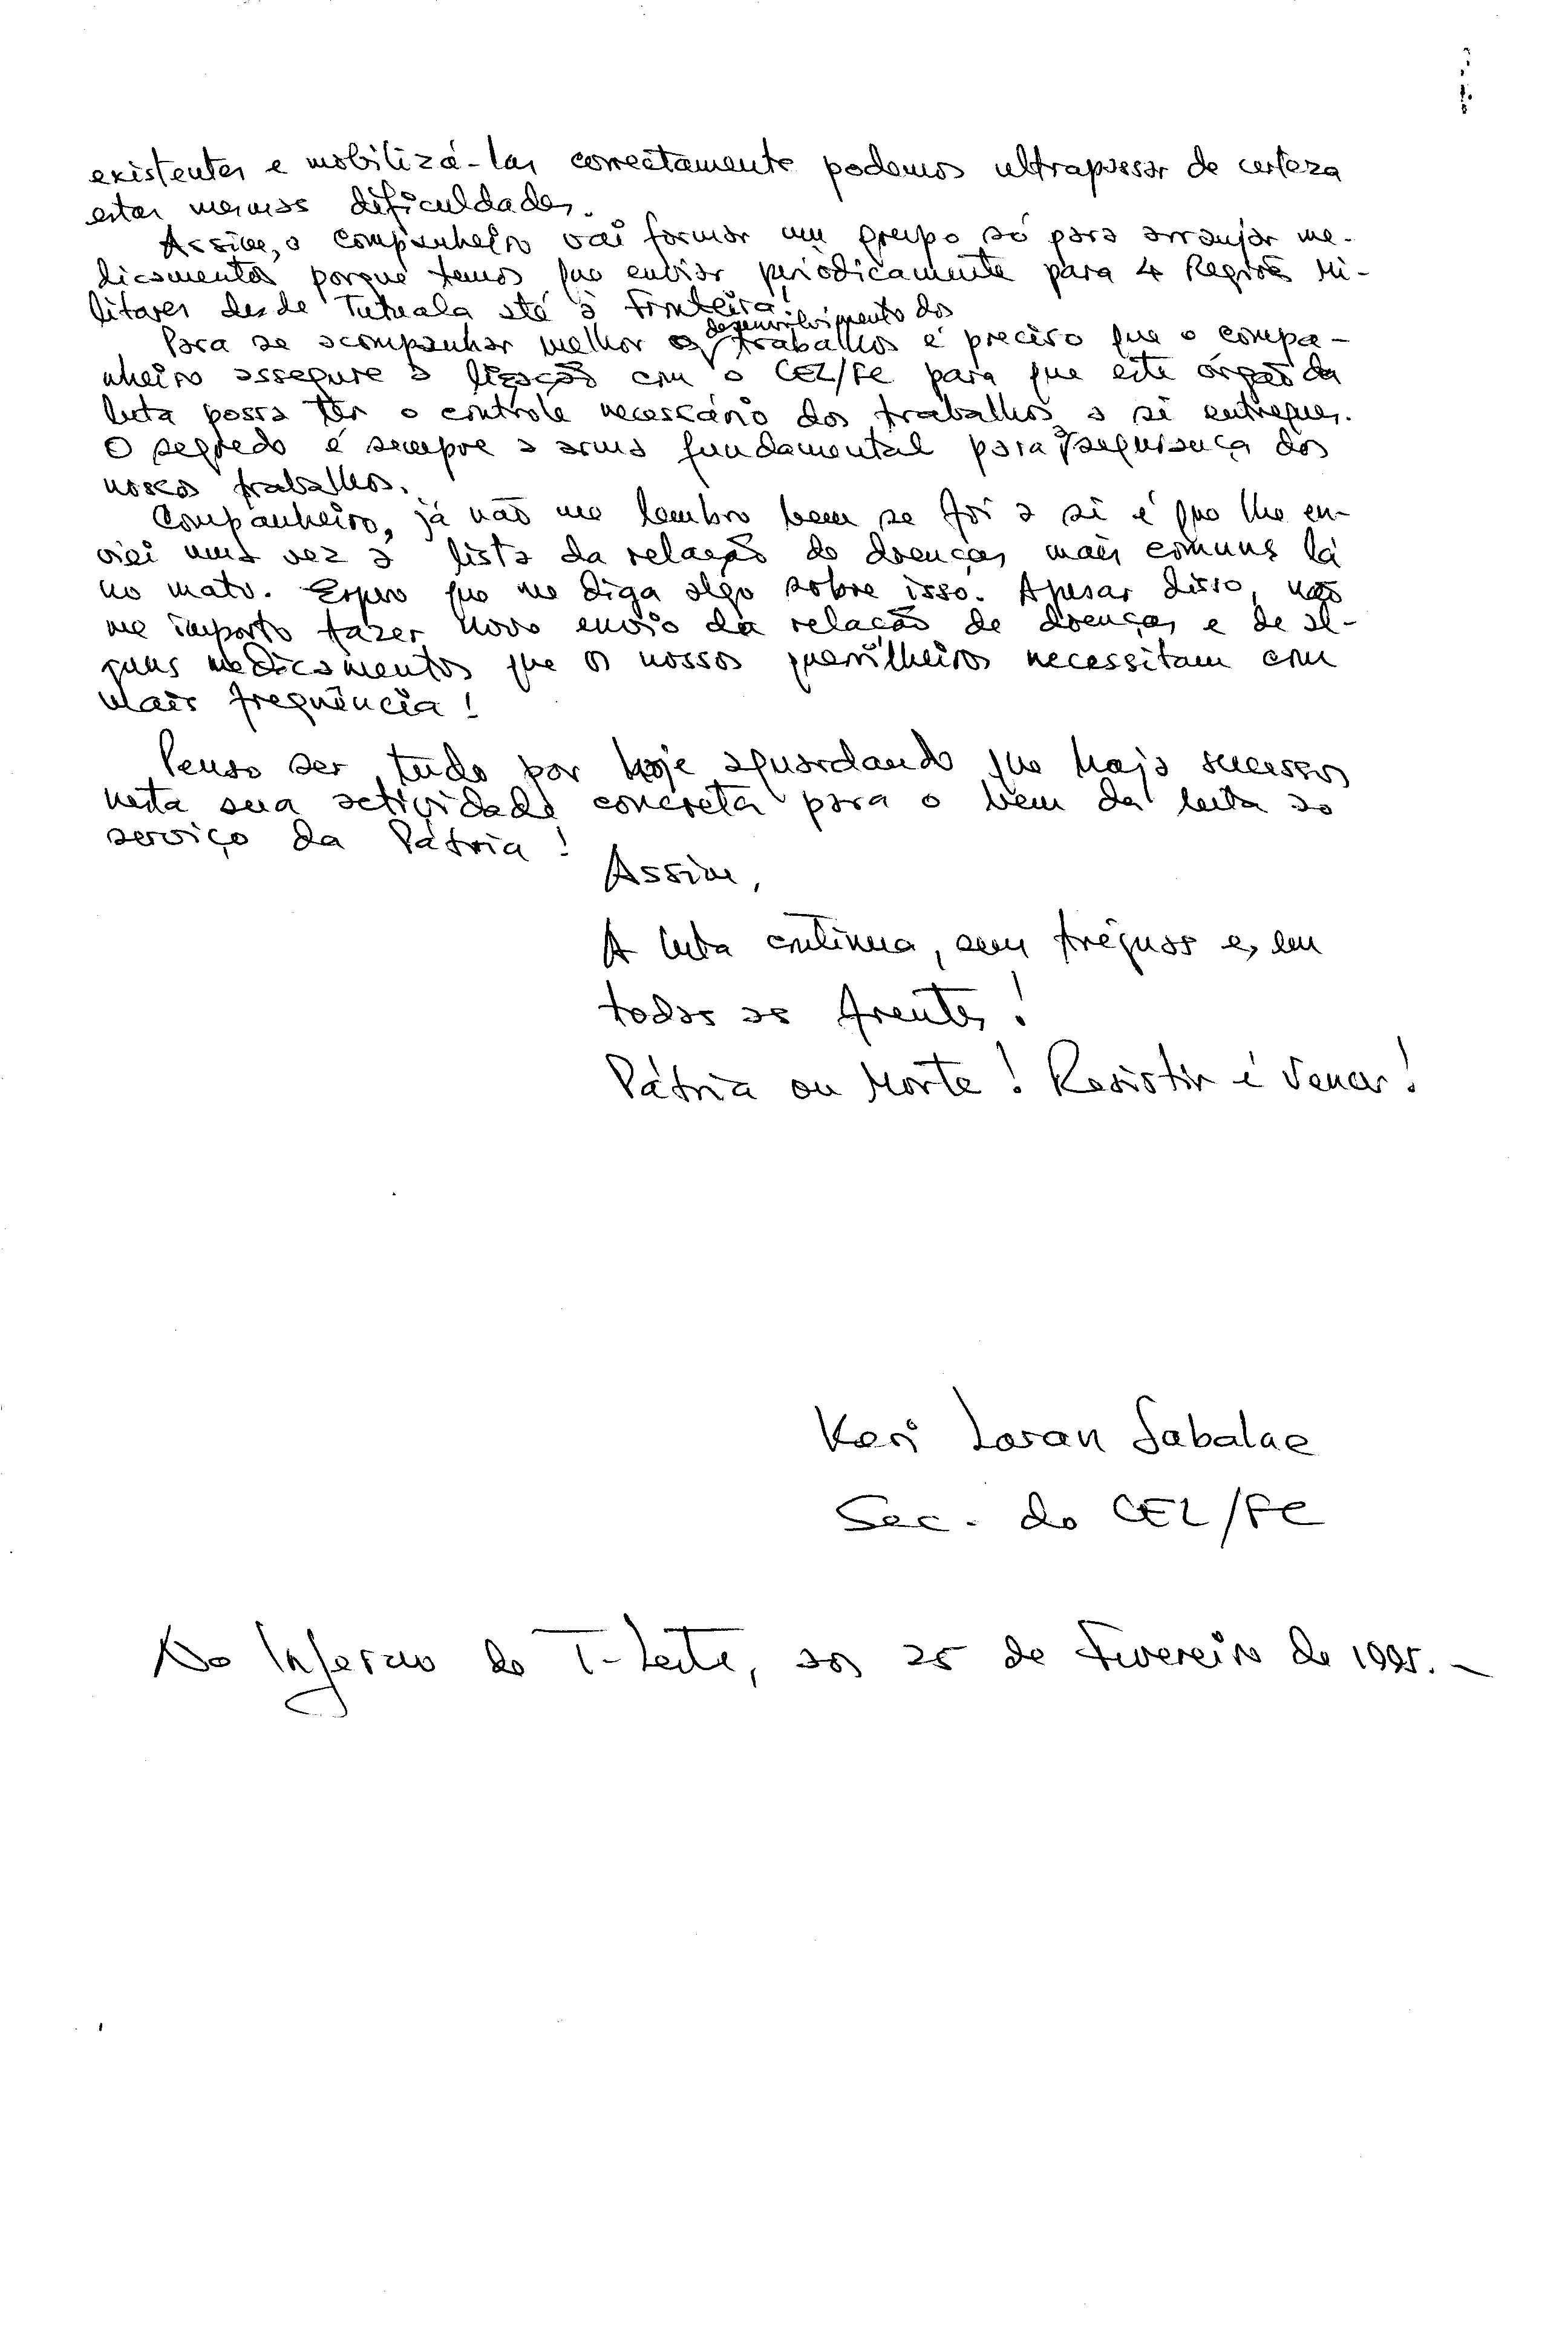 existentes e mobilizá-las correctamente podemos ultrapassar de certeza
estas mesmas dificuldades.
Assim, o companheiro vai formar um grupo só para arranjar me-
dicamentos porque temos que enviar periòdicamente para 4 Regiões Mi-
litares desde Tutuala até à Fronteira!
Para se acompanhar melhor o desenvolvimento dos trabalhos é preciso que o compa-
nheiro assegure a ligação com o CEL/FC para que este órgão da
luta possa ter o controle necessário dos trabalhos a si entregues.
O segredo é sempre a arma fundamental para a segurança dos
nossos trabalhos.
Companheiro, já não me lembro bem se foi a si é que lhe en-
viei uma vez a lista da relação de doenças mais comuns lá
no mato. Espero que me diga algo sobre isso. Apesar disso, não
me importo fazer novo envio da relação de doenças e de al-
guns medicamentos que os nossos guerrilheiros necessitam com
mais frequência!
Penso ser tudo por hoje aguardando que haja sucessos
nesta sua actividade concreta para o bem da luta ao
serviço da Pátria!
Assim,
A luta continua, sem tréguas e, em
todas as frentes!
Pátria ou Morte! Resistir é Vencer!
Keri Laran Sabalae
Sec. do CEL/FC
No Inferno de T-Leste, aos 25 de Fevereiro de 1995.-